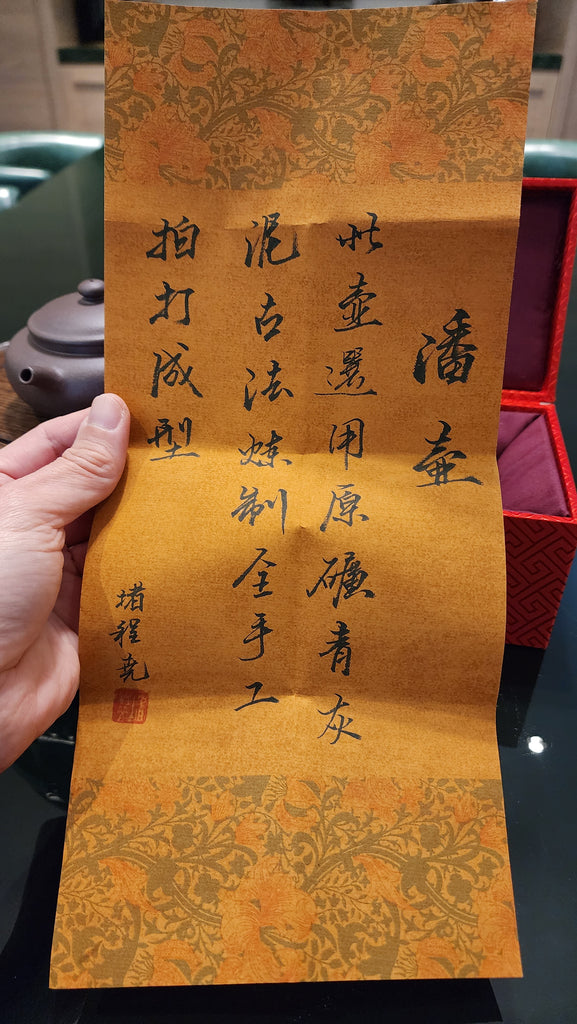 潘壷
此壷選用原礦青灰
泥古法炼制全手工
拍打成型
堵程尧